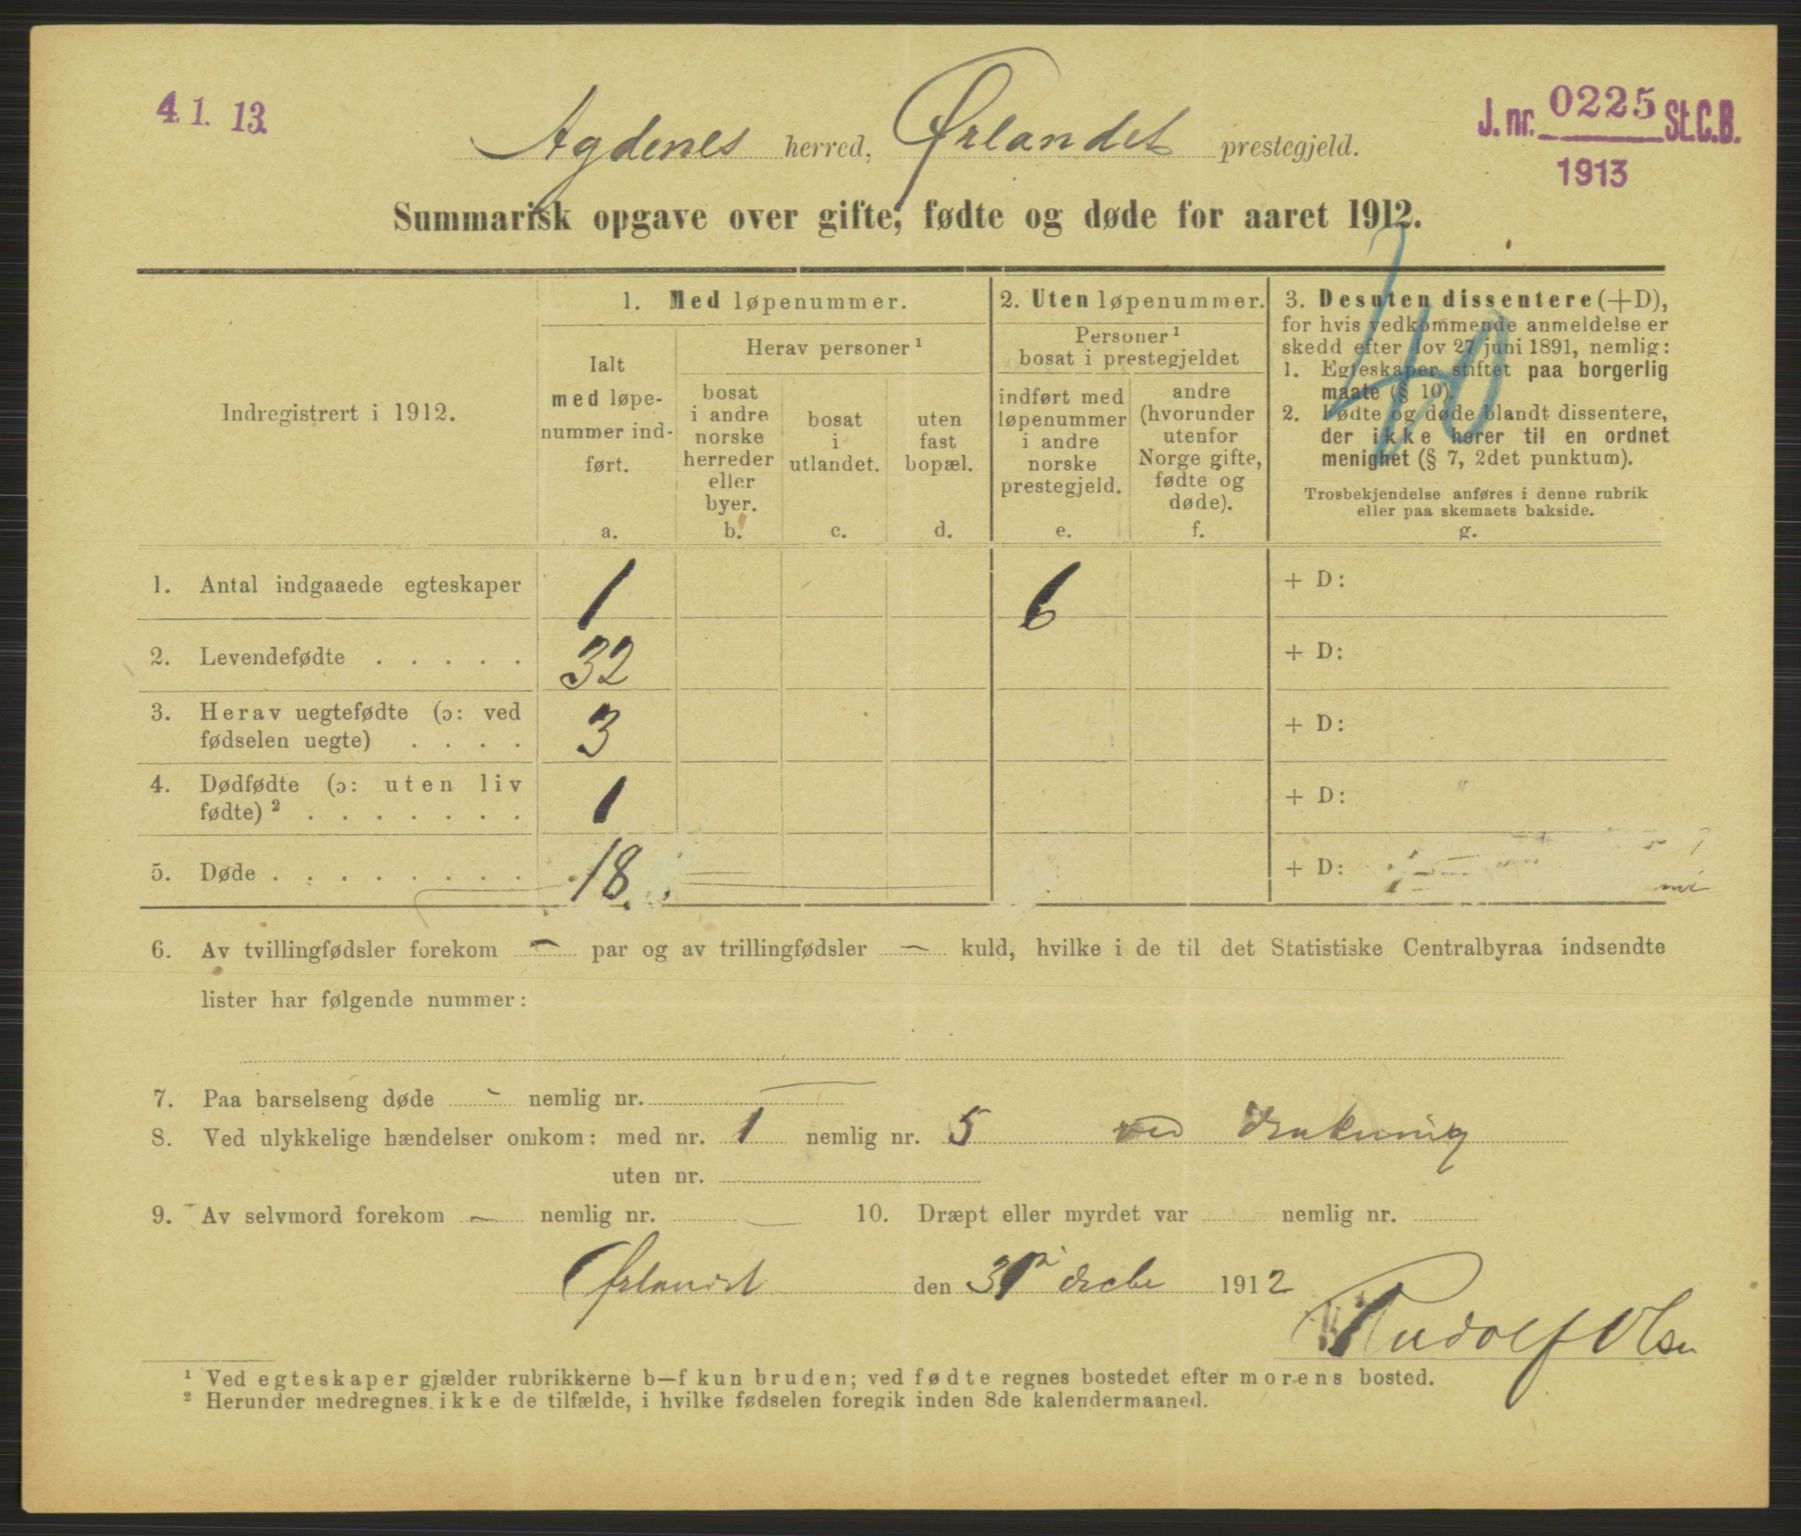 4 1. 13.
J. nr. 0225 St.C.B.
1913
Agdenes herred, Ørlandet prestegjeld.
Summarisk opgave over gifte, fødte og døde for aaret 1912.
Indregistrert i 1912.
1. Med løpenummer.
Ialt
med løpe-
nummer ind-
ført.
a.
Herav personer ¹
bosat
i andre
norske
herreder
eller
byer.
b.
bosat
i
utlandet.
c.
uten
fast
bopæl.
d.
2. Uten løpenummer.
Personer ¹
bosat i prestegjeldet
indført med
løpenummer
i andre
norske
prestegjeld.
e.
andre
(hvorunder
utenfor
Norge gifte,
fødte og
døde).
f.
3. Desuten dissentere (+D),
for hvis vedkommende anmeldelse er
skedd efter lov 27 juni 1891, nemlig:
1. Egteskaper stiftet paa borgerlig
maate (§ 10).
2. Fødte og døde blandt dissentere,
der ikke hører til en ordnet
menighet (§ 7, 2det punktum).
Trosbekjendelse anføres i denne rubrik
eller paa skemaets bakside.
g.
1. Antal indgaaede egteskaper 1 6 + D:
2. Levendefødte . . . . . 32 + D:
3. Herav uegtefødte (ɔ: ved
fødselen uegte) . . . . 3 + D:
4. Dødfødte (ɔ: uten liv
fødte) ² . . . . . . . 1 + D:
5. Døde . . . . . . . . 18. + D:
6. Av tvillingfødsler forekom — par og av trillingfødsler — kuld, hvilke i de til det Statistiske Centralbyraa indsendte
lister har følgende nummer:
7. Paa barselseng døde - nemlig nr. —
8. Ved ulykkelige hændelser omkom: med nr. 1 nemlig nr. 5 ved drukning
uten nr.
9. Av selvmord forekom — nemlig nr. — 10. Dræpt eller myrdet var nemlig nr.
Ørlandet den 31 decbr 1912
Rudolf Olsen
¹ Ved egteskaper gjælder rubrikkerne b—f kun bruden; ved fødte regnes bostedet efter morens bosted.
² Herunder medregnes ikke de tilfælde, i hvilke fødselen foregik inden 8de kalendermaaned.